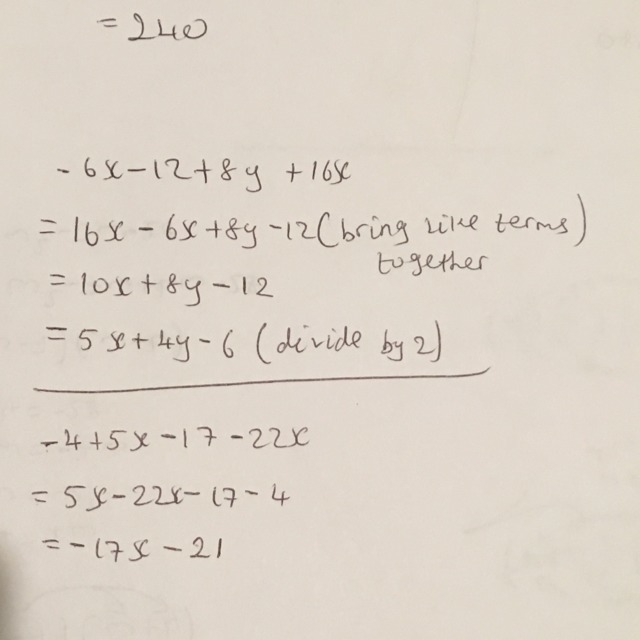 = 240
- 6x - 12 + 8y + 16x
= 16x - 6x + 8y - 12 (bring like terms)
together
= 10x + 8y - 12
= 5x + 4y - 6 (divide by 2)
- 4 + 5x - 17 - 22x
= 5x - 22x - 17 - 4
= - 17x - 21